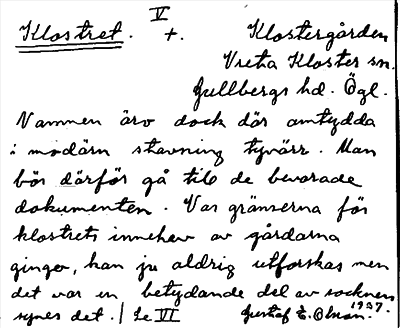 V
Klostret. +. Klostergården
Vreta Kloster sn.
Gullbergs hd. Ögl.
Namnen äro dock där antydda
i modärn stavning tyvärr. Man
bör därför gå till de bevarade
dokumenten. Var gränserna för
klostrets innehav av gårdarna
gingo, kan ju aldrig utforskas men
det var en betydande del av socknen
synes det. / Se VII Gustaf E. Olsson. 1937.